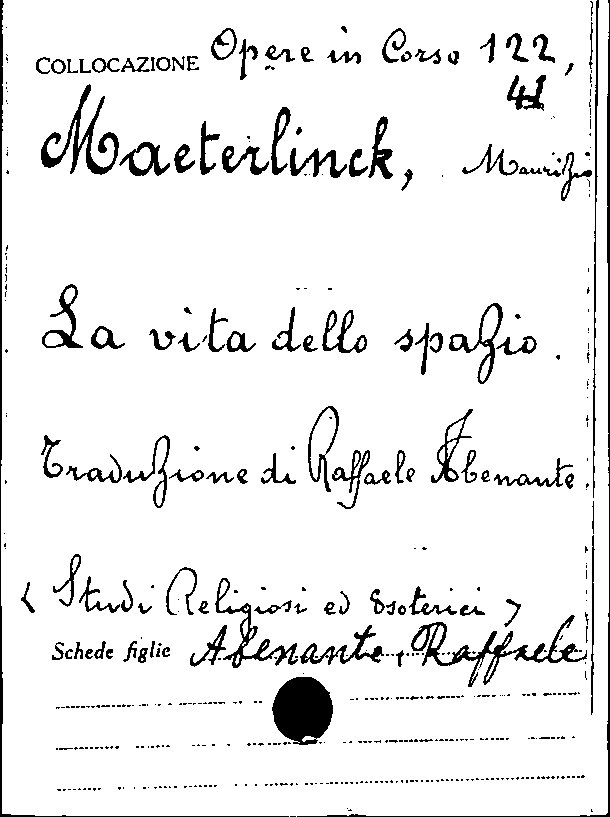 COLLOCAZIONE Opere in Corso 122,
41
Maeterlinck, Maurizio
La vita dello spazio.
Traduzione di Raffaele Abenante.
< Studi Religiosi ed Esoterici >
Schede figlie Abenante, Raffaele